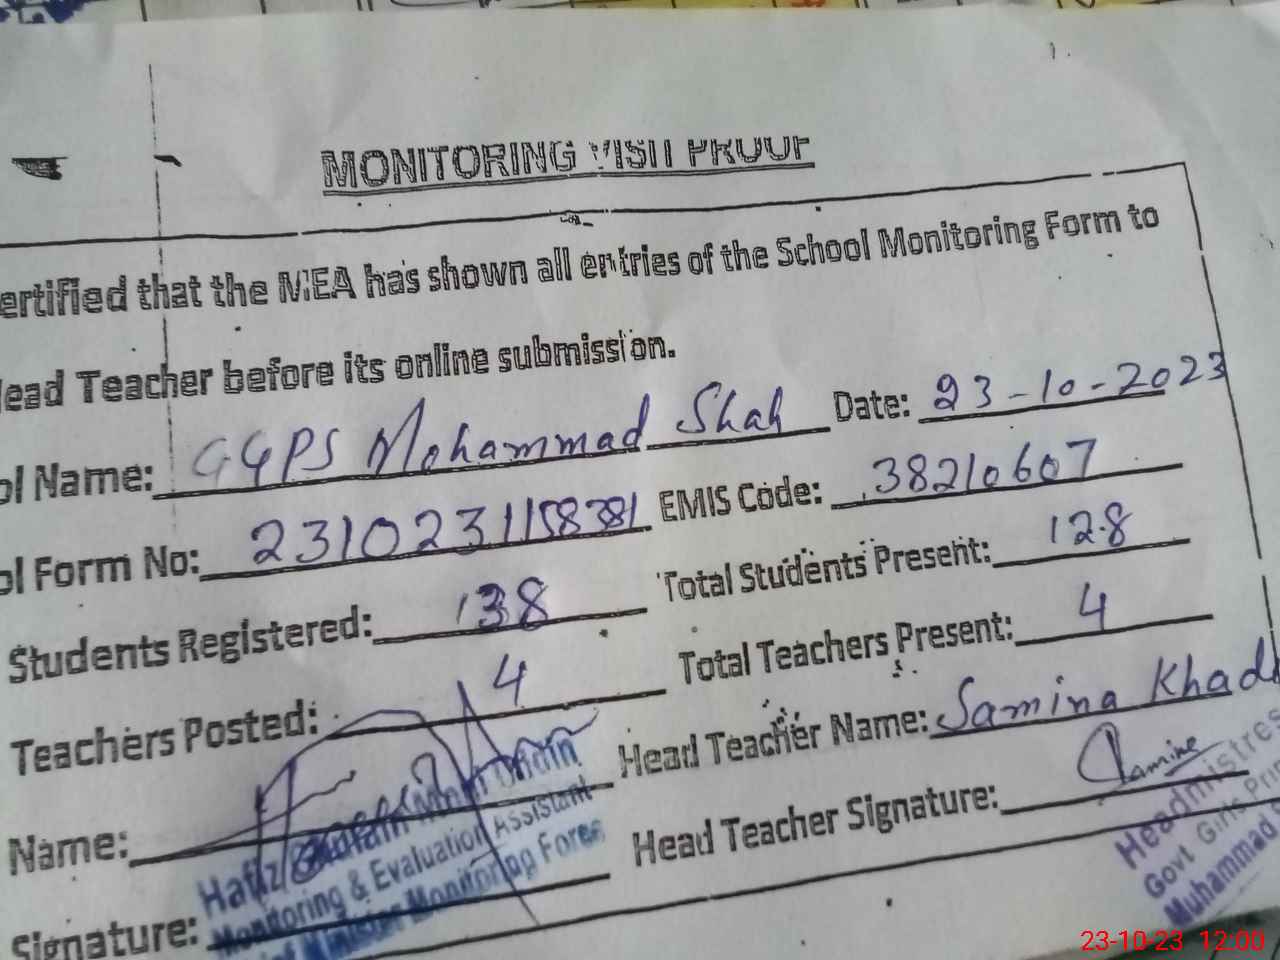 MONITORING VISIT PROOF
ertified that the MEA has shown all entries of the School Monitoring Form to
ead Teacher before its online submission.
ol Name: GGPS Mohammad Shah Date: 23-10-2023
ol Form No: 2310231158381 EMIS Code: 38210607
Students Registered: 138 Total Students Present: 128
Teachers Posted: 4 Total Teachers Present: 4
Name: Head Teacher Name: Samina Khad
Hafiz
Monitoring & Evaluation Assistant
Minister Monitoring Force
Signature: Head Teacher Signature: Samina
Headmistres
Govt Girls Pri
Muhammad
23-10-23 12:00